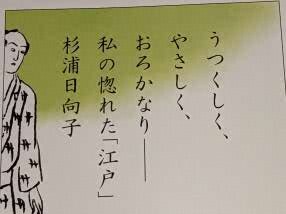 うつくしく、
やさしく、
おろかなり――
私の惚れた「江戸」
杉浦日向子